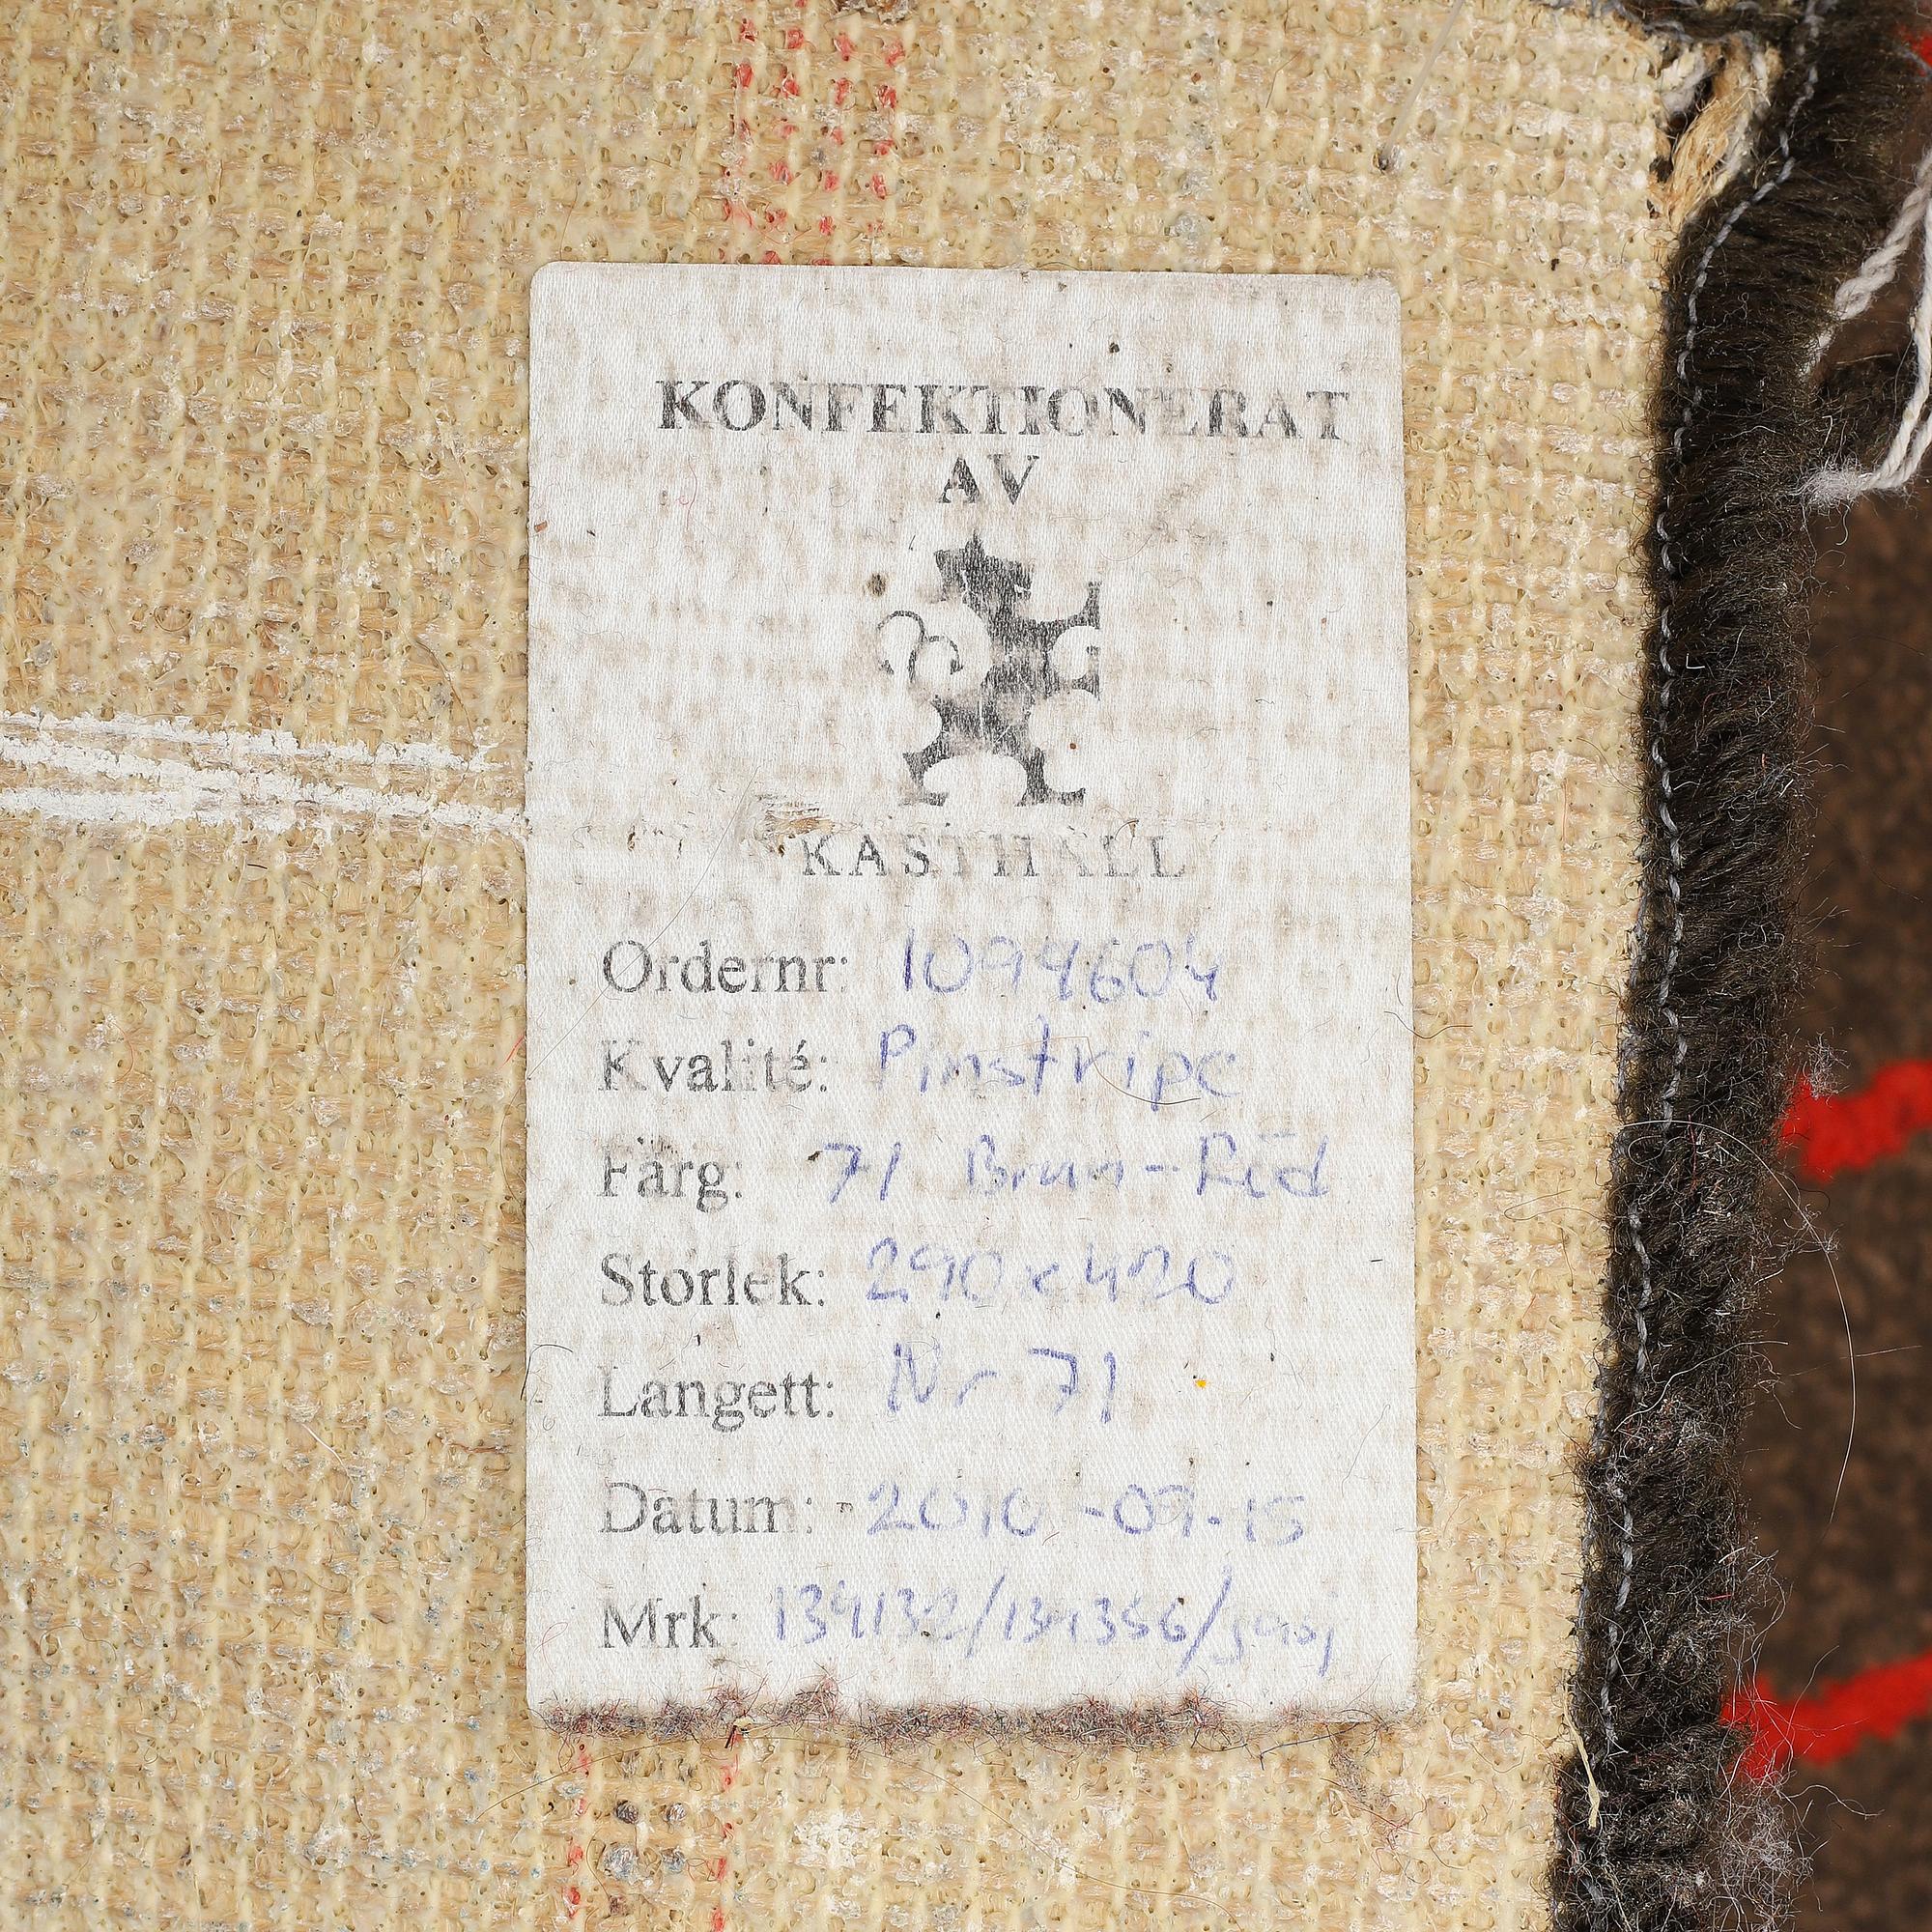 KONFEKTIONERAT
AV
KASTHALL
Ordernr: 1094604
Kvalité: Pinstripe
Färg: 71 Brun-Röd
Storlek: 290x420
Langett: Nr 71
Datum: 2010-09-15
Mrk: 134132/134356/